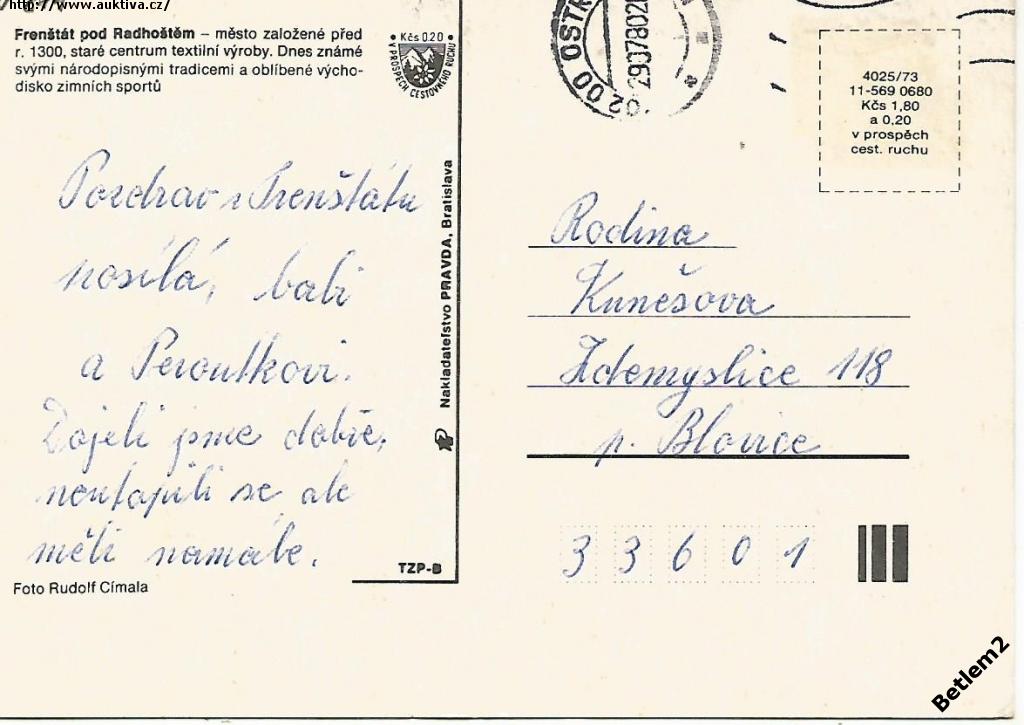 http://www.auktiva.cz/
Frenštát pod Radhoštěm – město založené před
r. 1300, staré centrum textilní výroby. Dnes známé
svými národopisnými tradicemi a oblíbené výcho-
disko zimních sportů
Kčs 0.20
V PROSPĚCH CESTOVNÉHO RUCHU
Pozdrav z Frenštátu
posílá, babi
a Peroutkovi.
Dojeli jsme dobře,
neutopili se ale
měli namále.
Foto Rudolf Címala
Nakladateľstvo PRAVDA, Bratislava
TZP-B
4025/73
11-569 0680
Kčs 1,80
a 0.20
v prospěch
cest. ruchu
Rodina
Kunešova
Zdemyslice 118
p. Blovice
33601
Betlem2